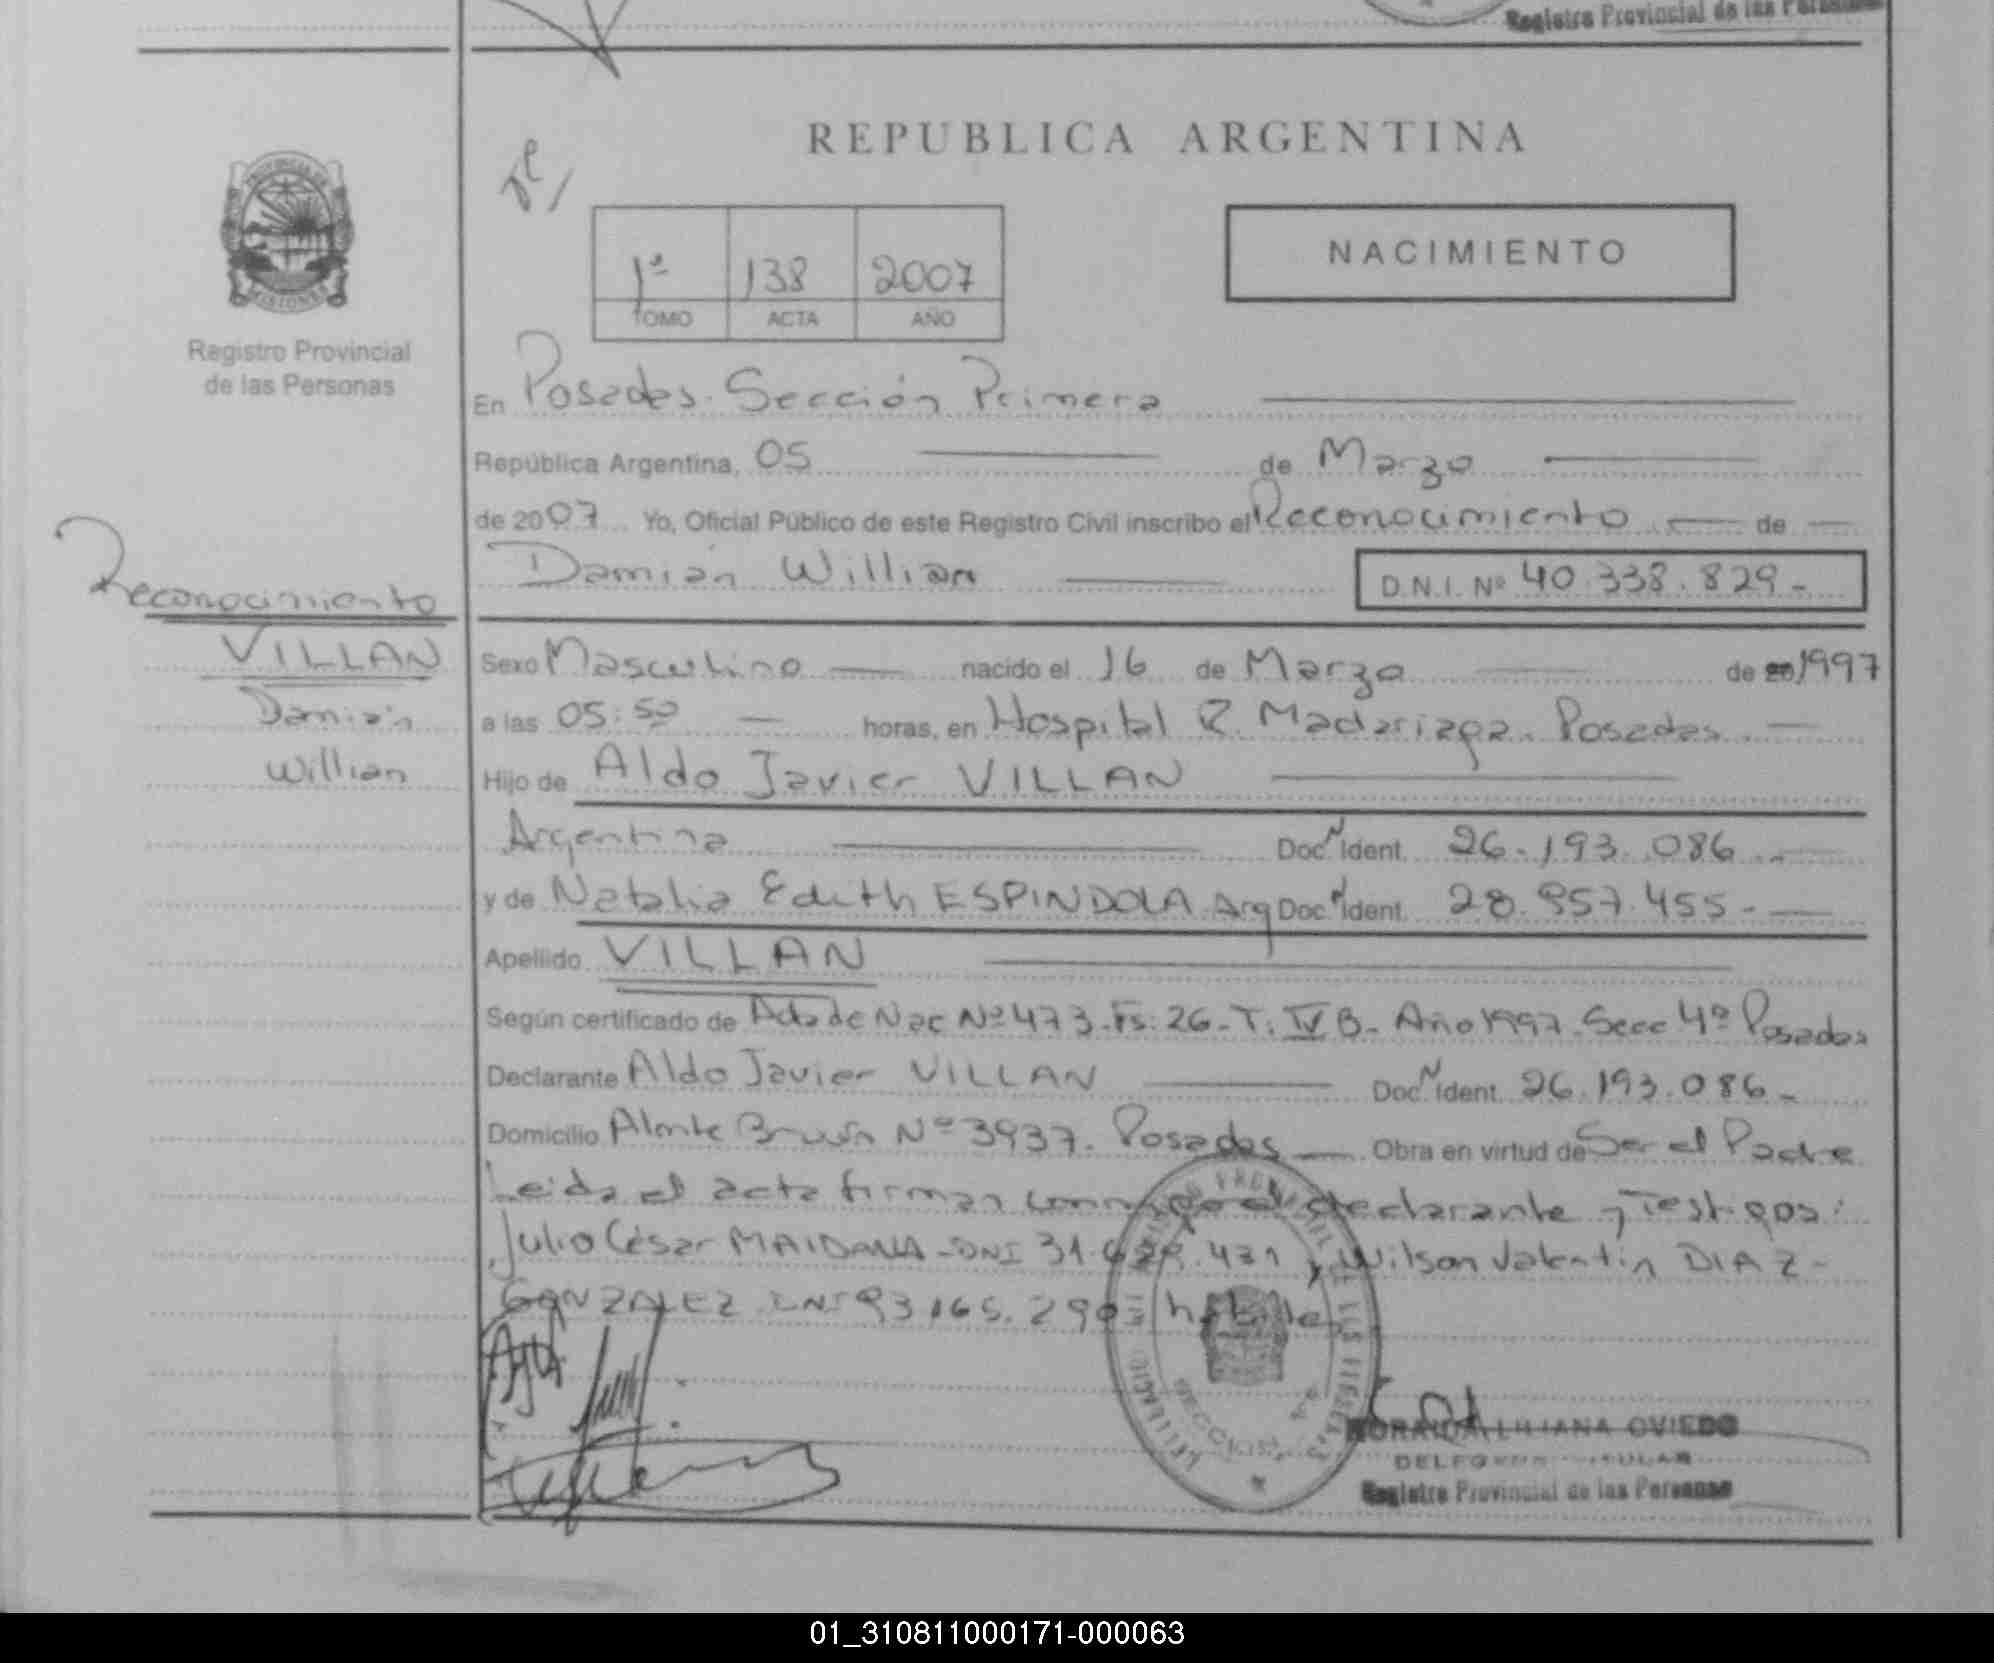 Registro Provincial de las Personas
REPUBLICA ARGENTINA
PROVINCIA DE
MISIONES
Registro Provincial
de las Personas
1º 138 2007
TOMO ACTA AÑO
NACIMIENTO
En Posadas. Sección Primera
República Argentina, 05 de Marzo
de 2007 Yo, Oficial Público de este Registro Civil inscribo el Reconocimiento de
Damián Willian D.N.I. Nº 40.338.829-
Reconocimiento
VILLAN
Damián
Willian
Sexo Masculino nacido el 16 de Marzo de 1997
a las 05:50 horas, en Hospital R. Madariaga. Posadas.
Hijo de Aldo Javier VILLAN
Argentina Doc. N Ident. 26.193.086.-
y de Natalia Edith ESPINDOLA Arg Doc. N Ident. 28.957.455-
Apellido VILLAN
Según certificado de Acta de Nac Nº 473-Fs: 26-T: IV B- Año 1997. Secc 4º Posadas
Declarante Aldo Javier VILLAN Doc. N Ident. 26.193.086-
Domicilio Almte Brown Nº 3937. Posadas Obra en virtud de Ser el Padre
Leida el acta firman conmigo el declarante y Testigos:
Julio César MAIDANA-DNI 31. .431 y Wilson Valentín DIAZ-
GONZALEZ DNI 93.165.290 hábiles
LILIANA OVIEDO
Registro Provincial de las Personas
01_310811000171-000063